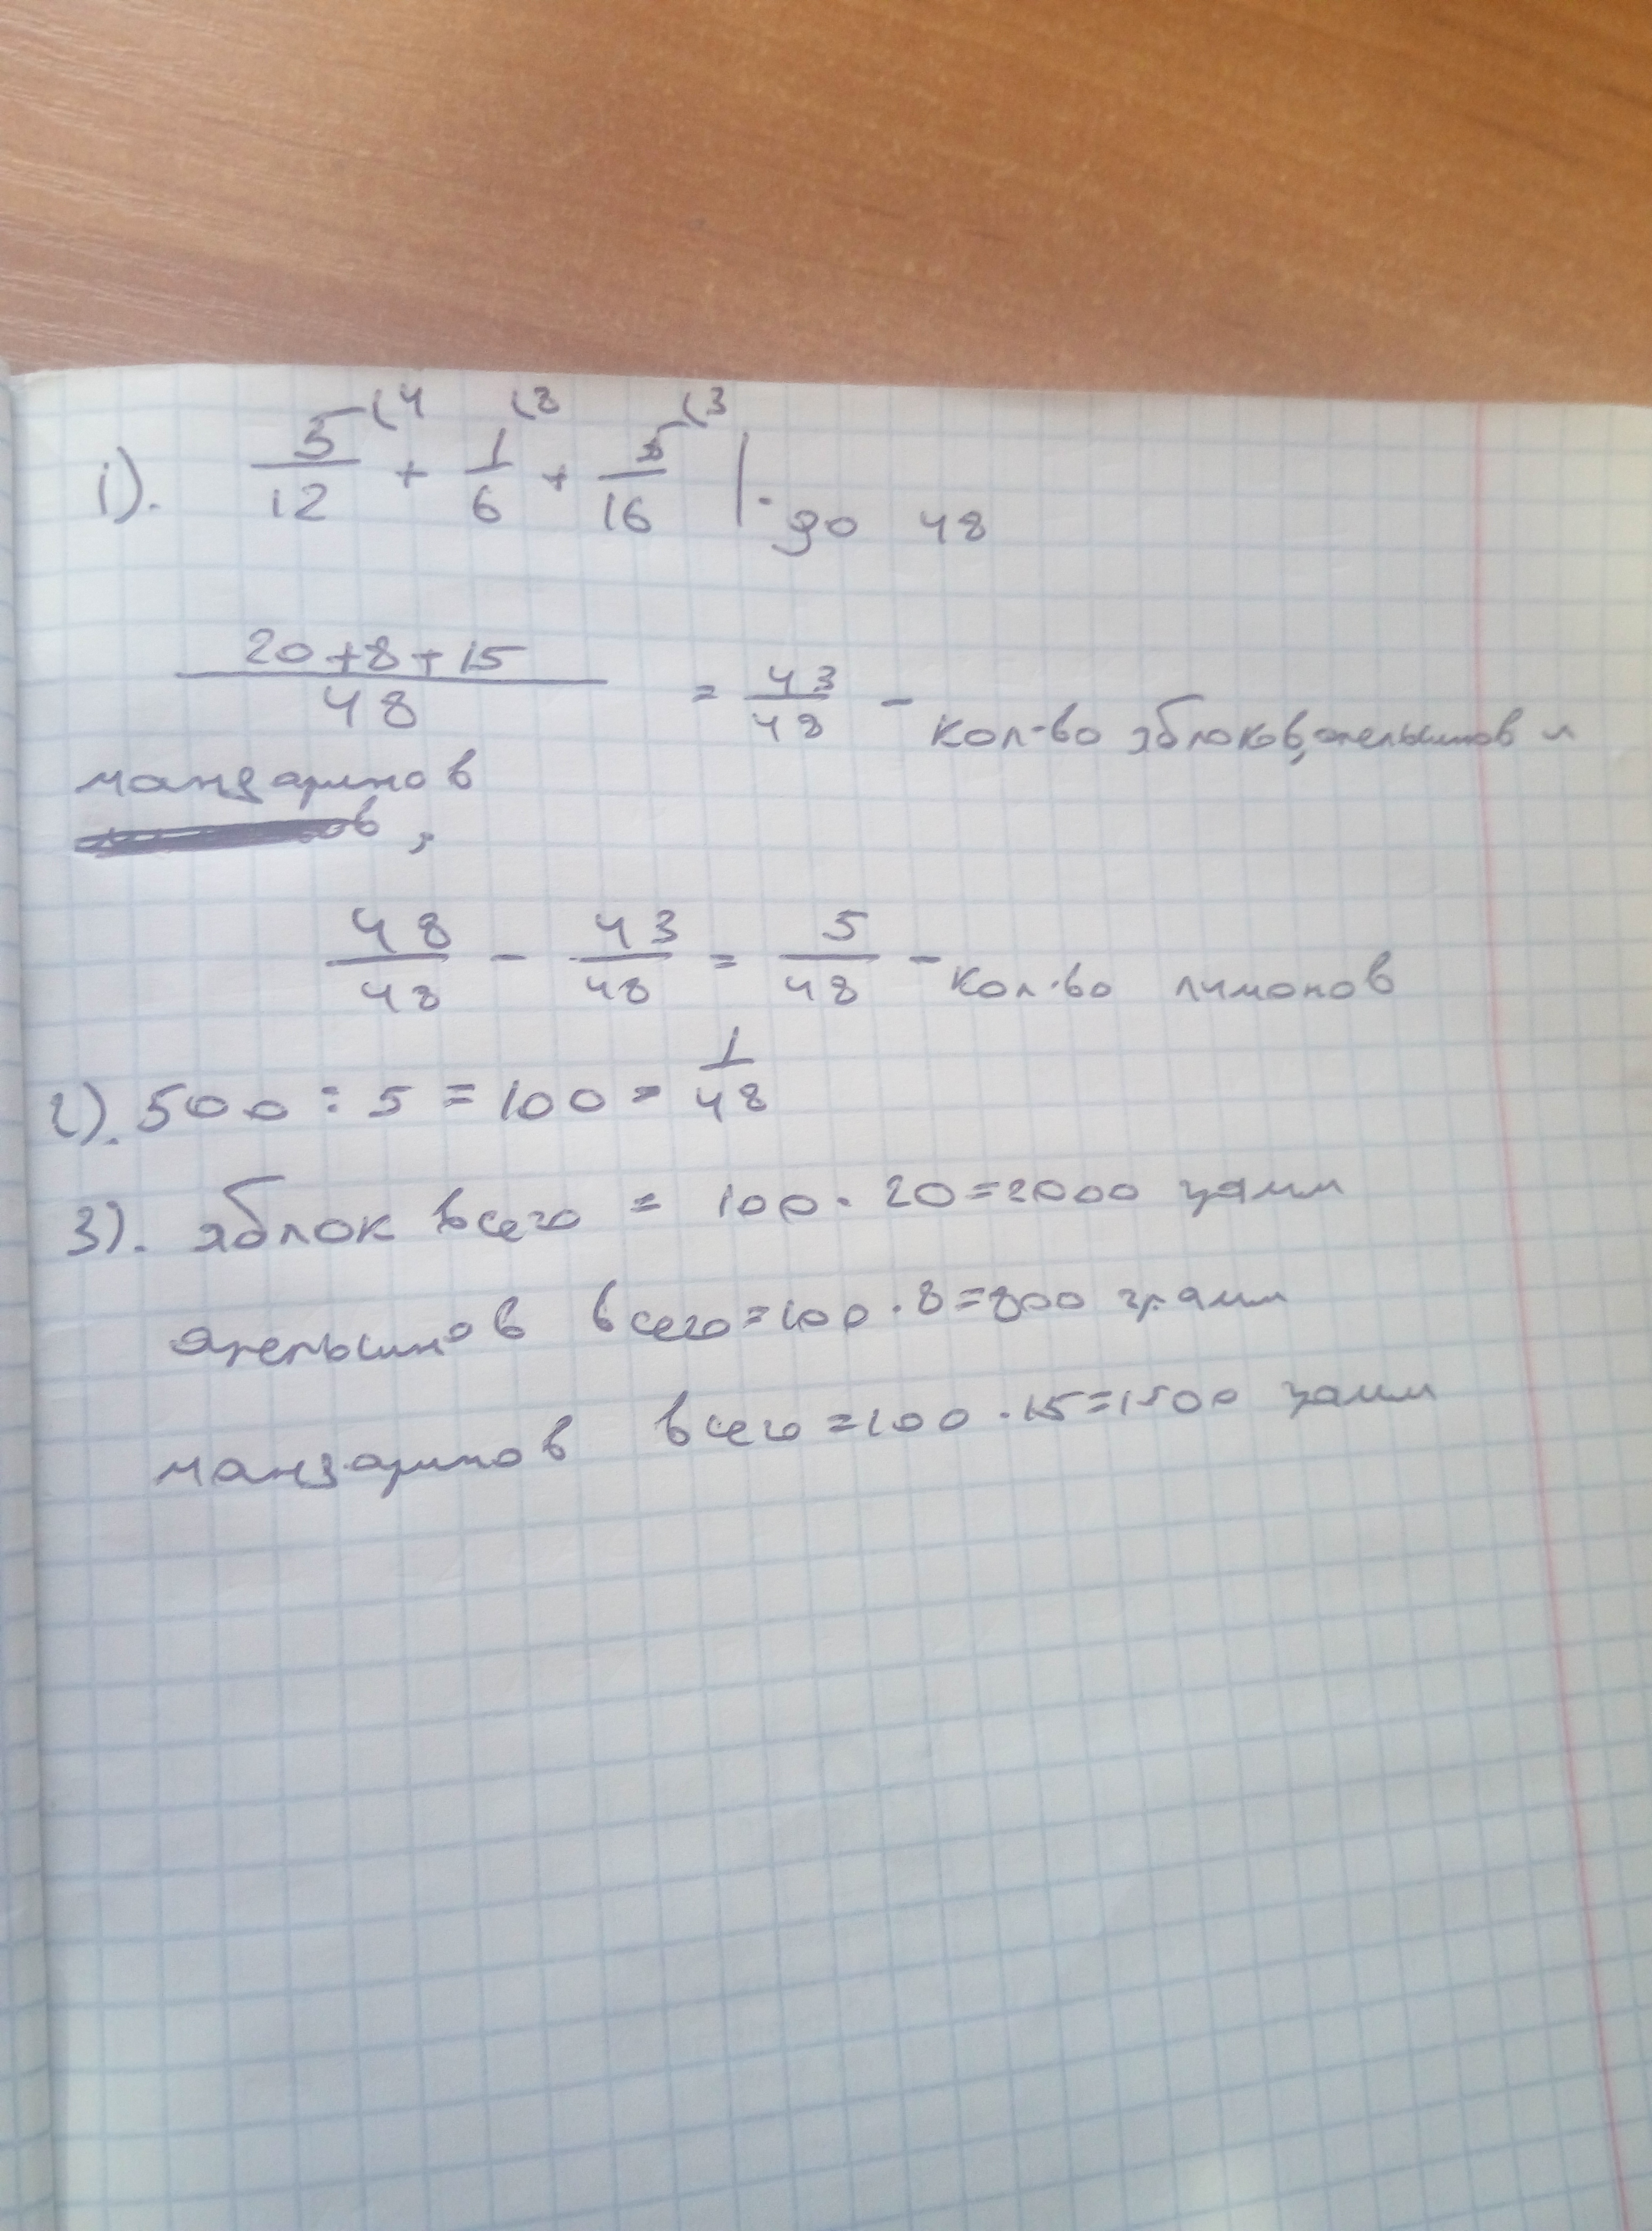 1). 5/12 (4 + 1/6 (8 + 5/16 (3 |. до 48
20+8+15/48 = 43/48 - кол-во яблоков, апельсинов и
мандаринов
,
48/48 - 43/48 = 5/48 - кол-во лимонов
2). 500 : 5 = 100 = 1/48
3). яблок всего = 100 · 20 = 2000 грамм
апельсинов всего = 100 · 8 = 800 грамм
мандаринов всего = 100 · 15 = 1500 грамм